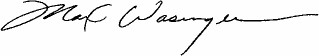 Max Wasinger